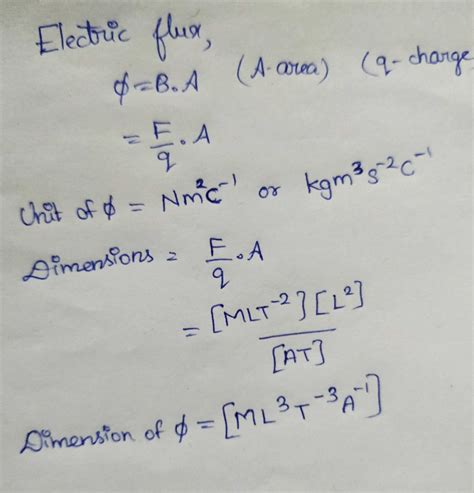 Electric flux,
φ = B.A (A-area) (q-charge
= F/q . A
Unit of φ = Nm²C⁻¹ or kgm³s⁻²C⁻¹
Dimensions = F/q . A
= [MLT⁻²][L²]/[AT]
Dimension of φ = [ML³T⁻³A⁻¹]